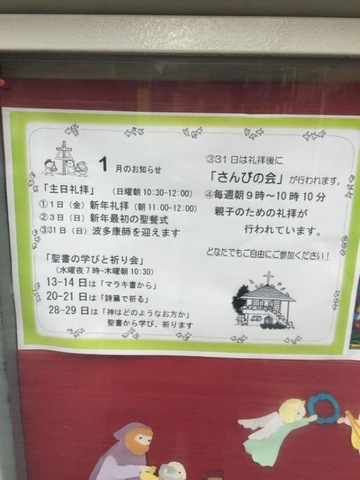 1月のお知らせ
「主日礼拝」 (日曜朝10:30-12:00)
①1日(金)新年礼拝(朝11:00-12:00)
②3日(日)新年最初の聖餐式
③31日(日)波多康師を迎えます
「聖書の学びと祈り会」
(水曜夜7時-木曜朝10:30)
13-14日は「マラキ書から」
20-21日は「詩篇で祈る」
28-29日は「神はどのようなお方か」
聖書から学び、祈ります
③31日は礼拝後に
「さんびの会」が行われます。
④毎週朝9時~10時10分
親子のための礼拝が
行われています。
どなたでもご自由にご参加ください!